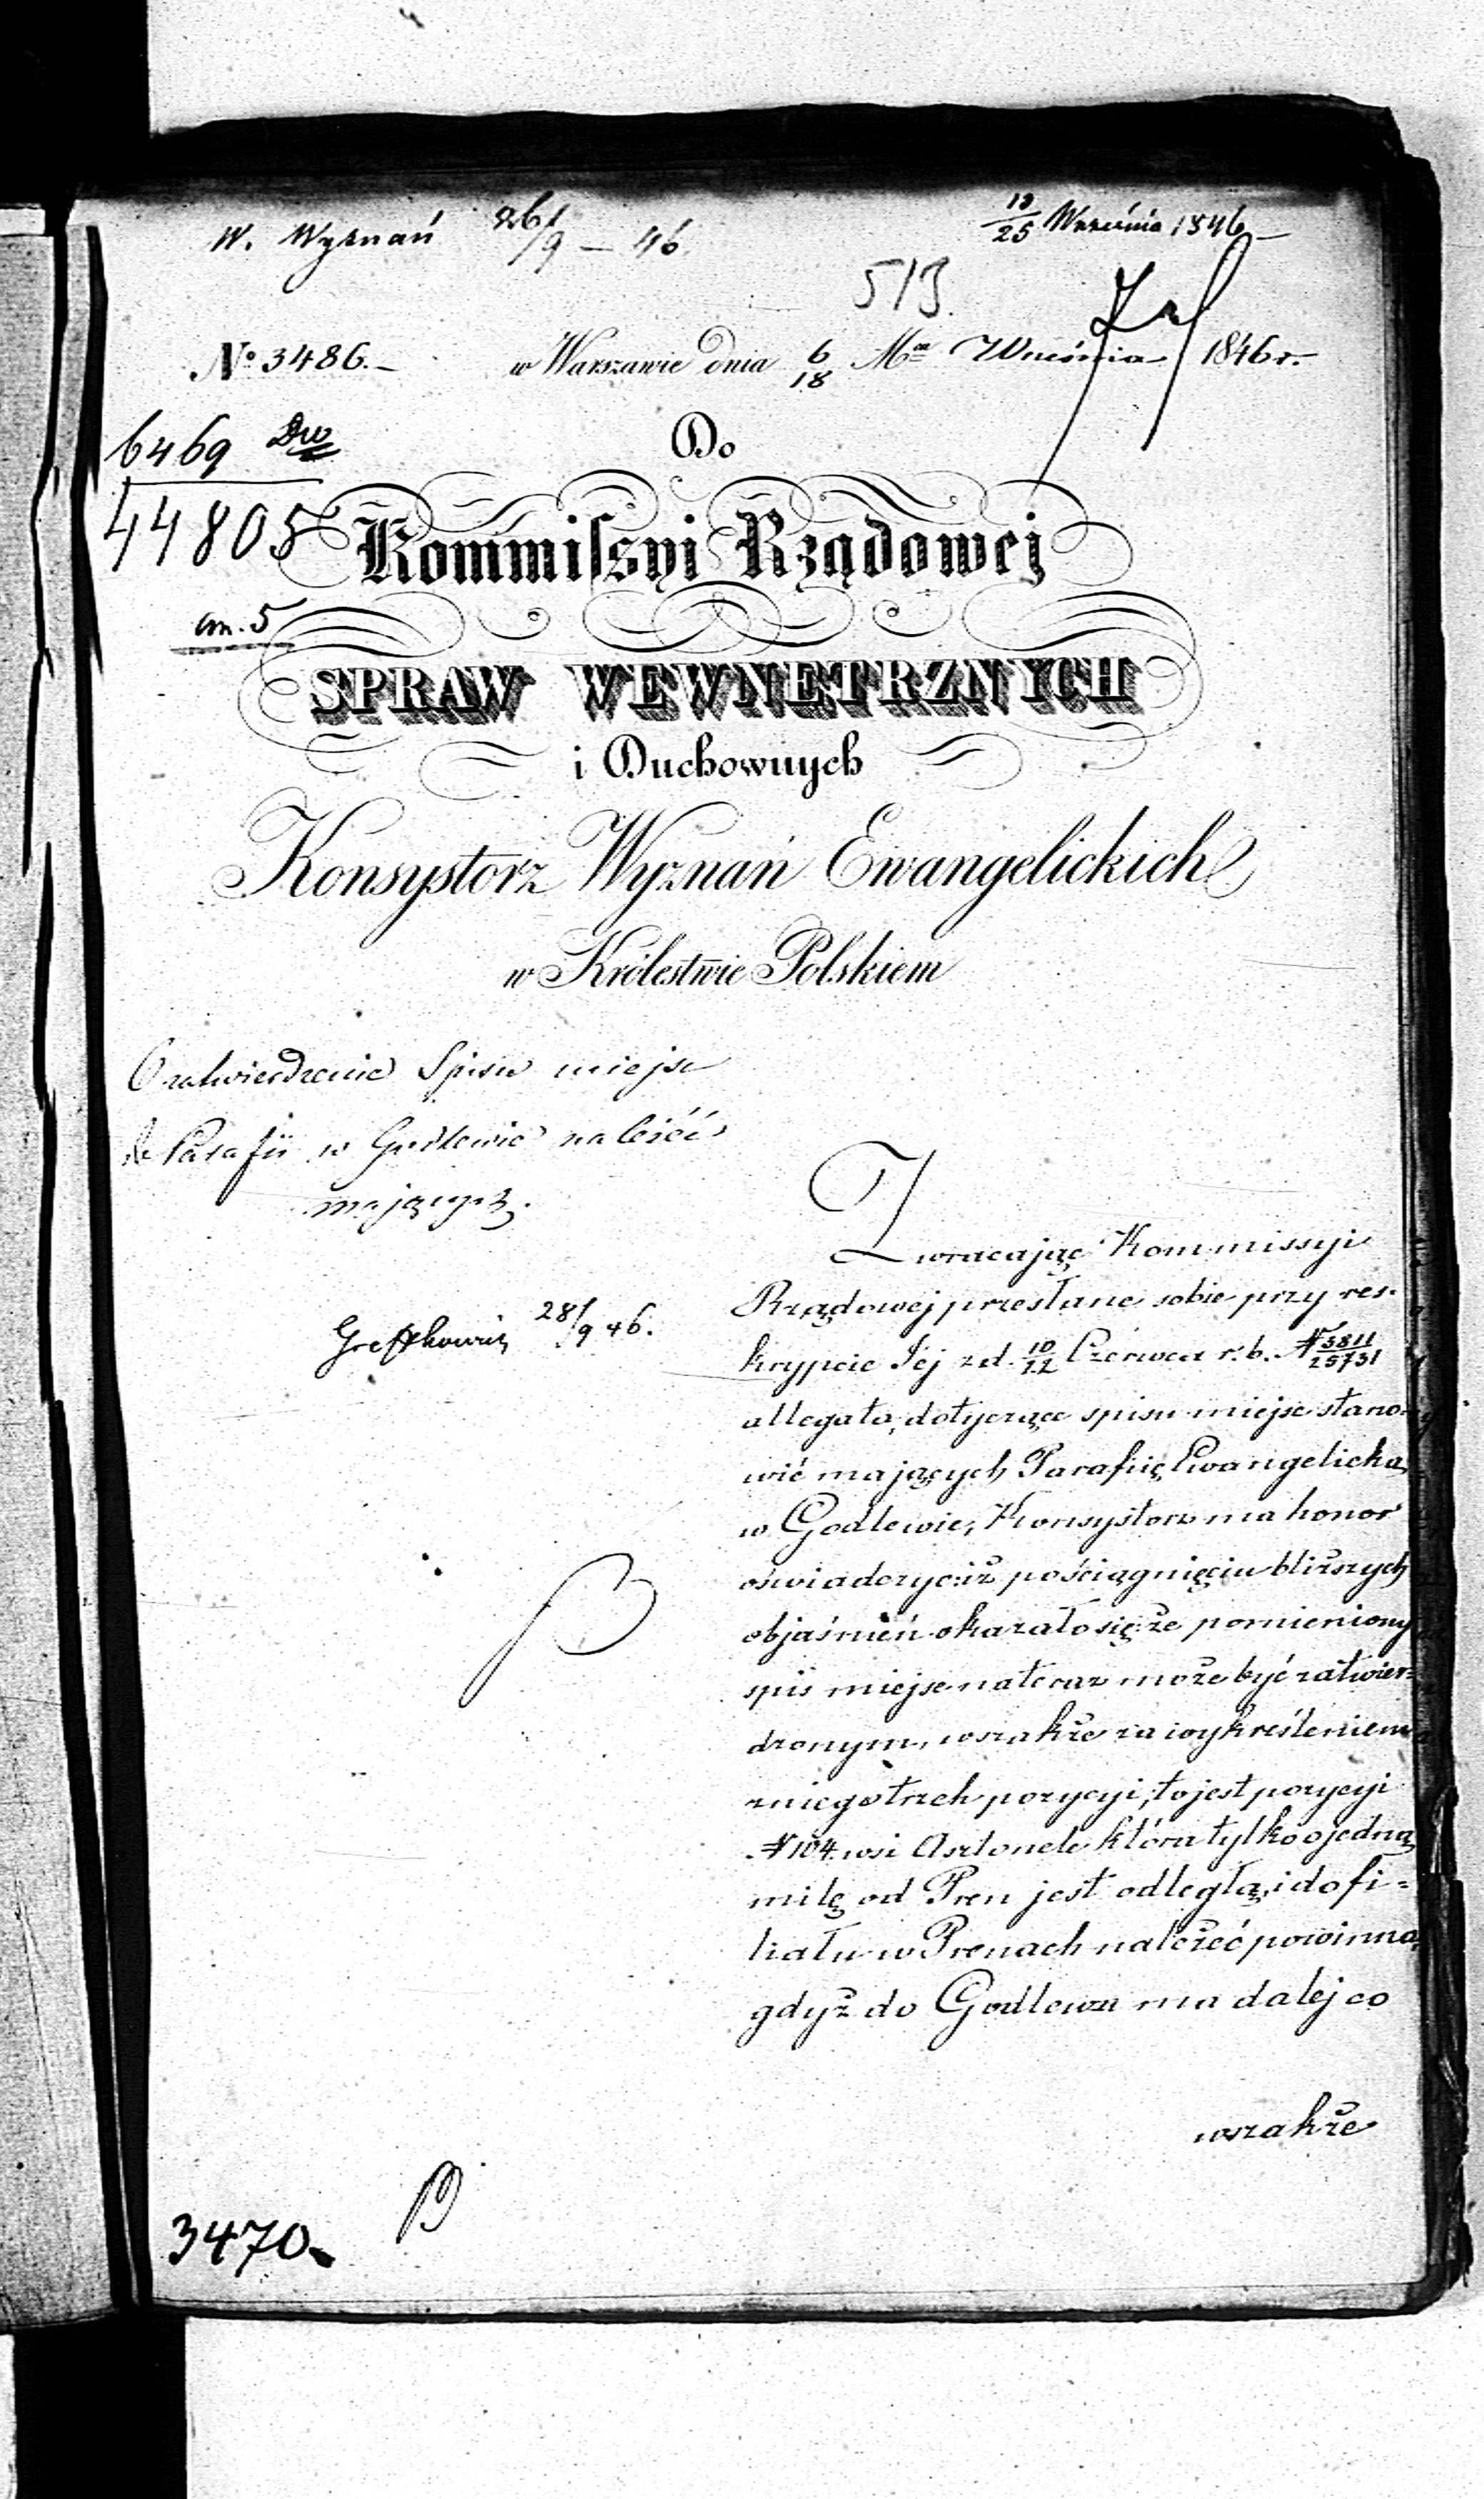 W. Wyznań 26/9 – 46.
13/25 Września 1846 –
513.
No 3486. –
w Warszawie dnia 6/18 Mca Września 1846 r. –
6469 Dw
44805
Do
Kommissyi Rządowej
SPRAW WEWNĘTRZNYCH
i Duchownych
Konsystorz Wyznań Ewangelickich
w Królestwie Polskiem
O zatwierdzenie Spisu miejsc
do Parafii w Godlewie należeć
mających.
28/9 46.
Zwracając Kommissyi
Rządowej przesłane sobie przy res-
krypcie Jej z d. 10/22 Czerwca r. b. N 3811/25731
allegata, dotyczące spisu miejsc stano-
wić mających Parafiię Ewangelicką
w Godlewie, Konsystorz ma honor
oświadczyć: iż po ściągnięciu bliższych
objaśnień okazało się: że pomieniony
spis miejsc na teraz może być zatwier-
dzonym, wszakże za wykreśleniem
z niego trzech pozycyi; to jest pozycyi
N 104 wsi Asztonele która tylko o jedną
milę od Pren jest odległą, i do fi=
liału w Prenach należeć powinna,
gdyż do Godlewa ma dalej co
wszakże
3470.